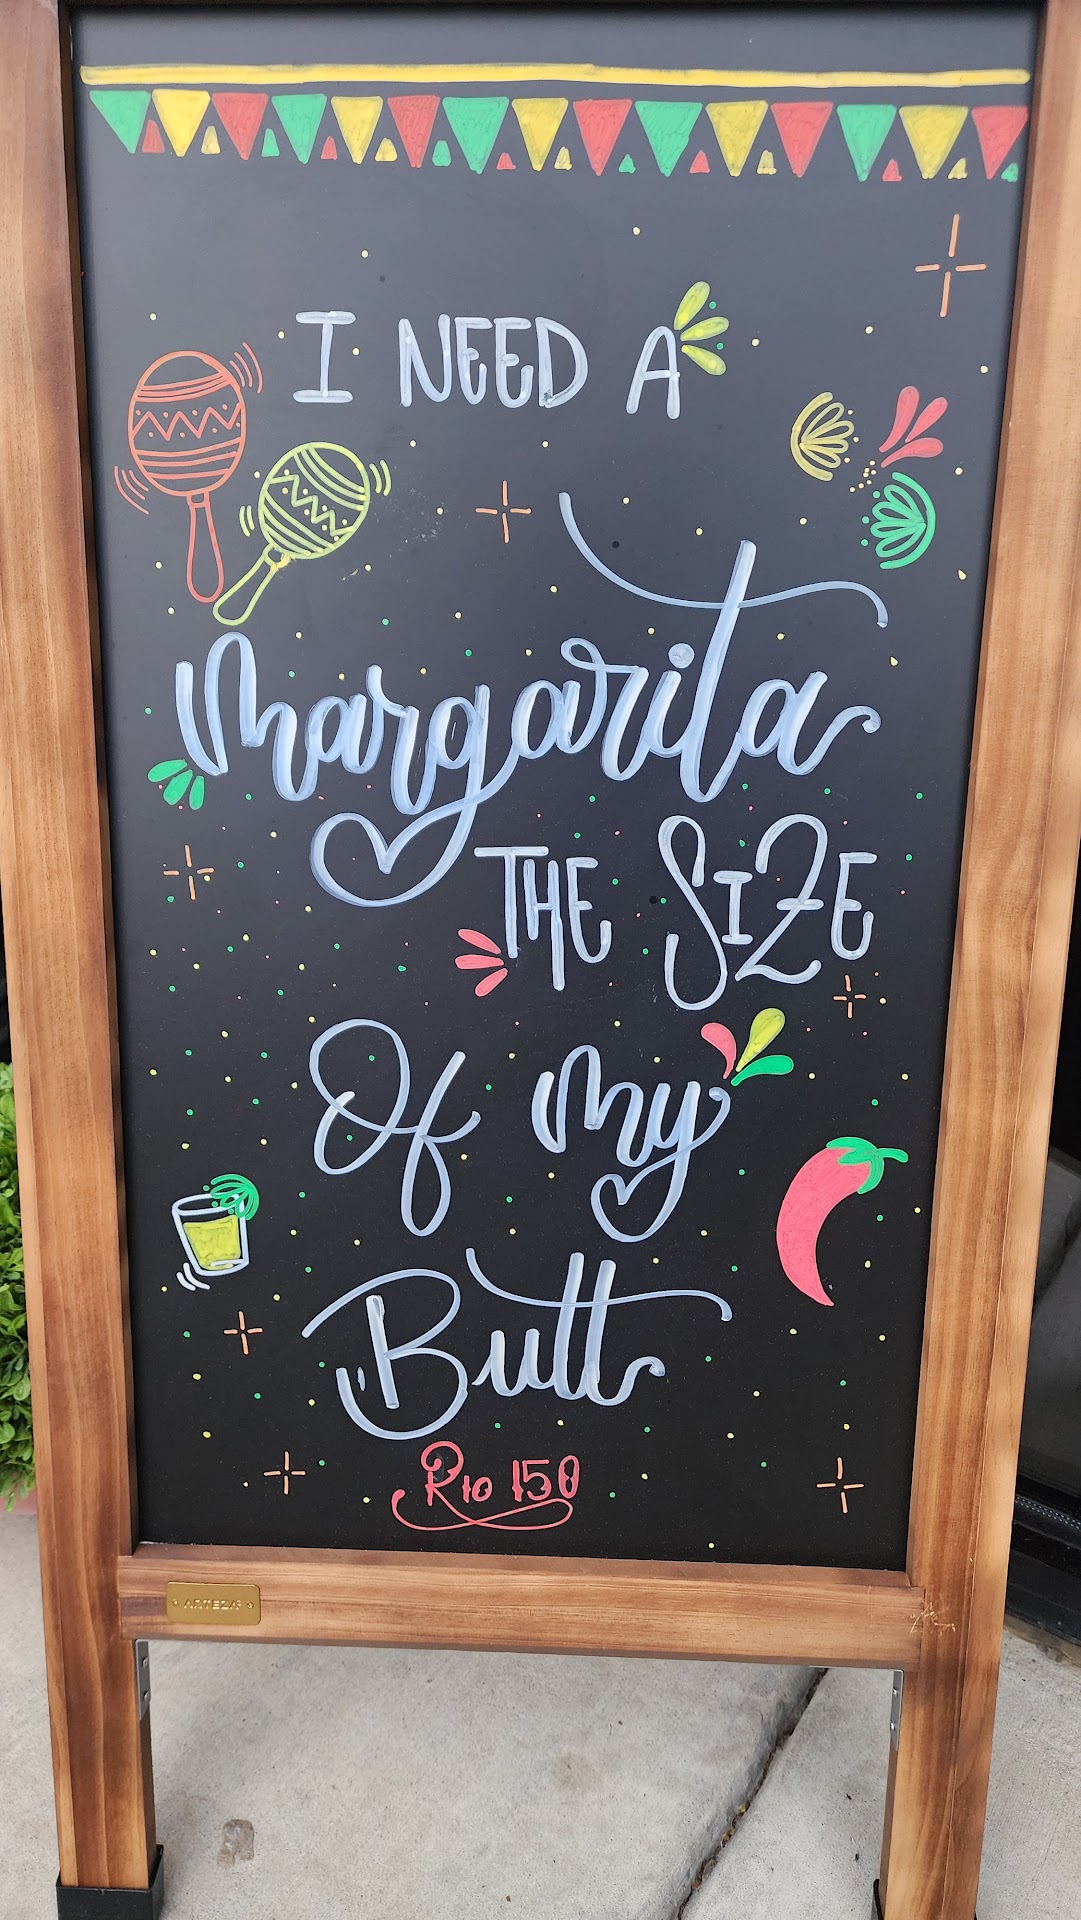 I NEED A
Margarita
THE SIZE
Of my
Butt
Rio 150
ARTEZA